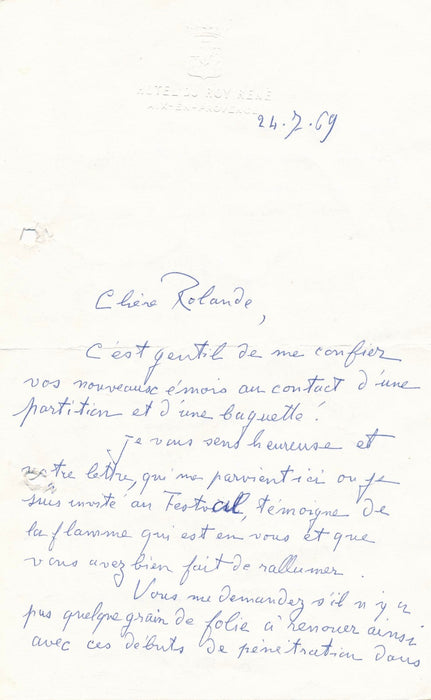 HÔTEL DU ROY RENÉ
AIX-EN-PROVENCE
24.7.69
Chère Rolande,
C'est gentil de me confier
vos nouveaux émois au contact d'une
partition et d'une baguette !
Je vous sens heureuse et
votre lettre, qui me parvient ici où je
suis invité au Festival, témoigne de
la flamme qui est en vous et que
vous avez bien fait de rallumer.
Vous me demandez s'il n'y a
pas quelque grain de folie à renouer ainsi
avec ces débuts de pénétration dans